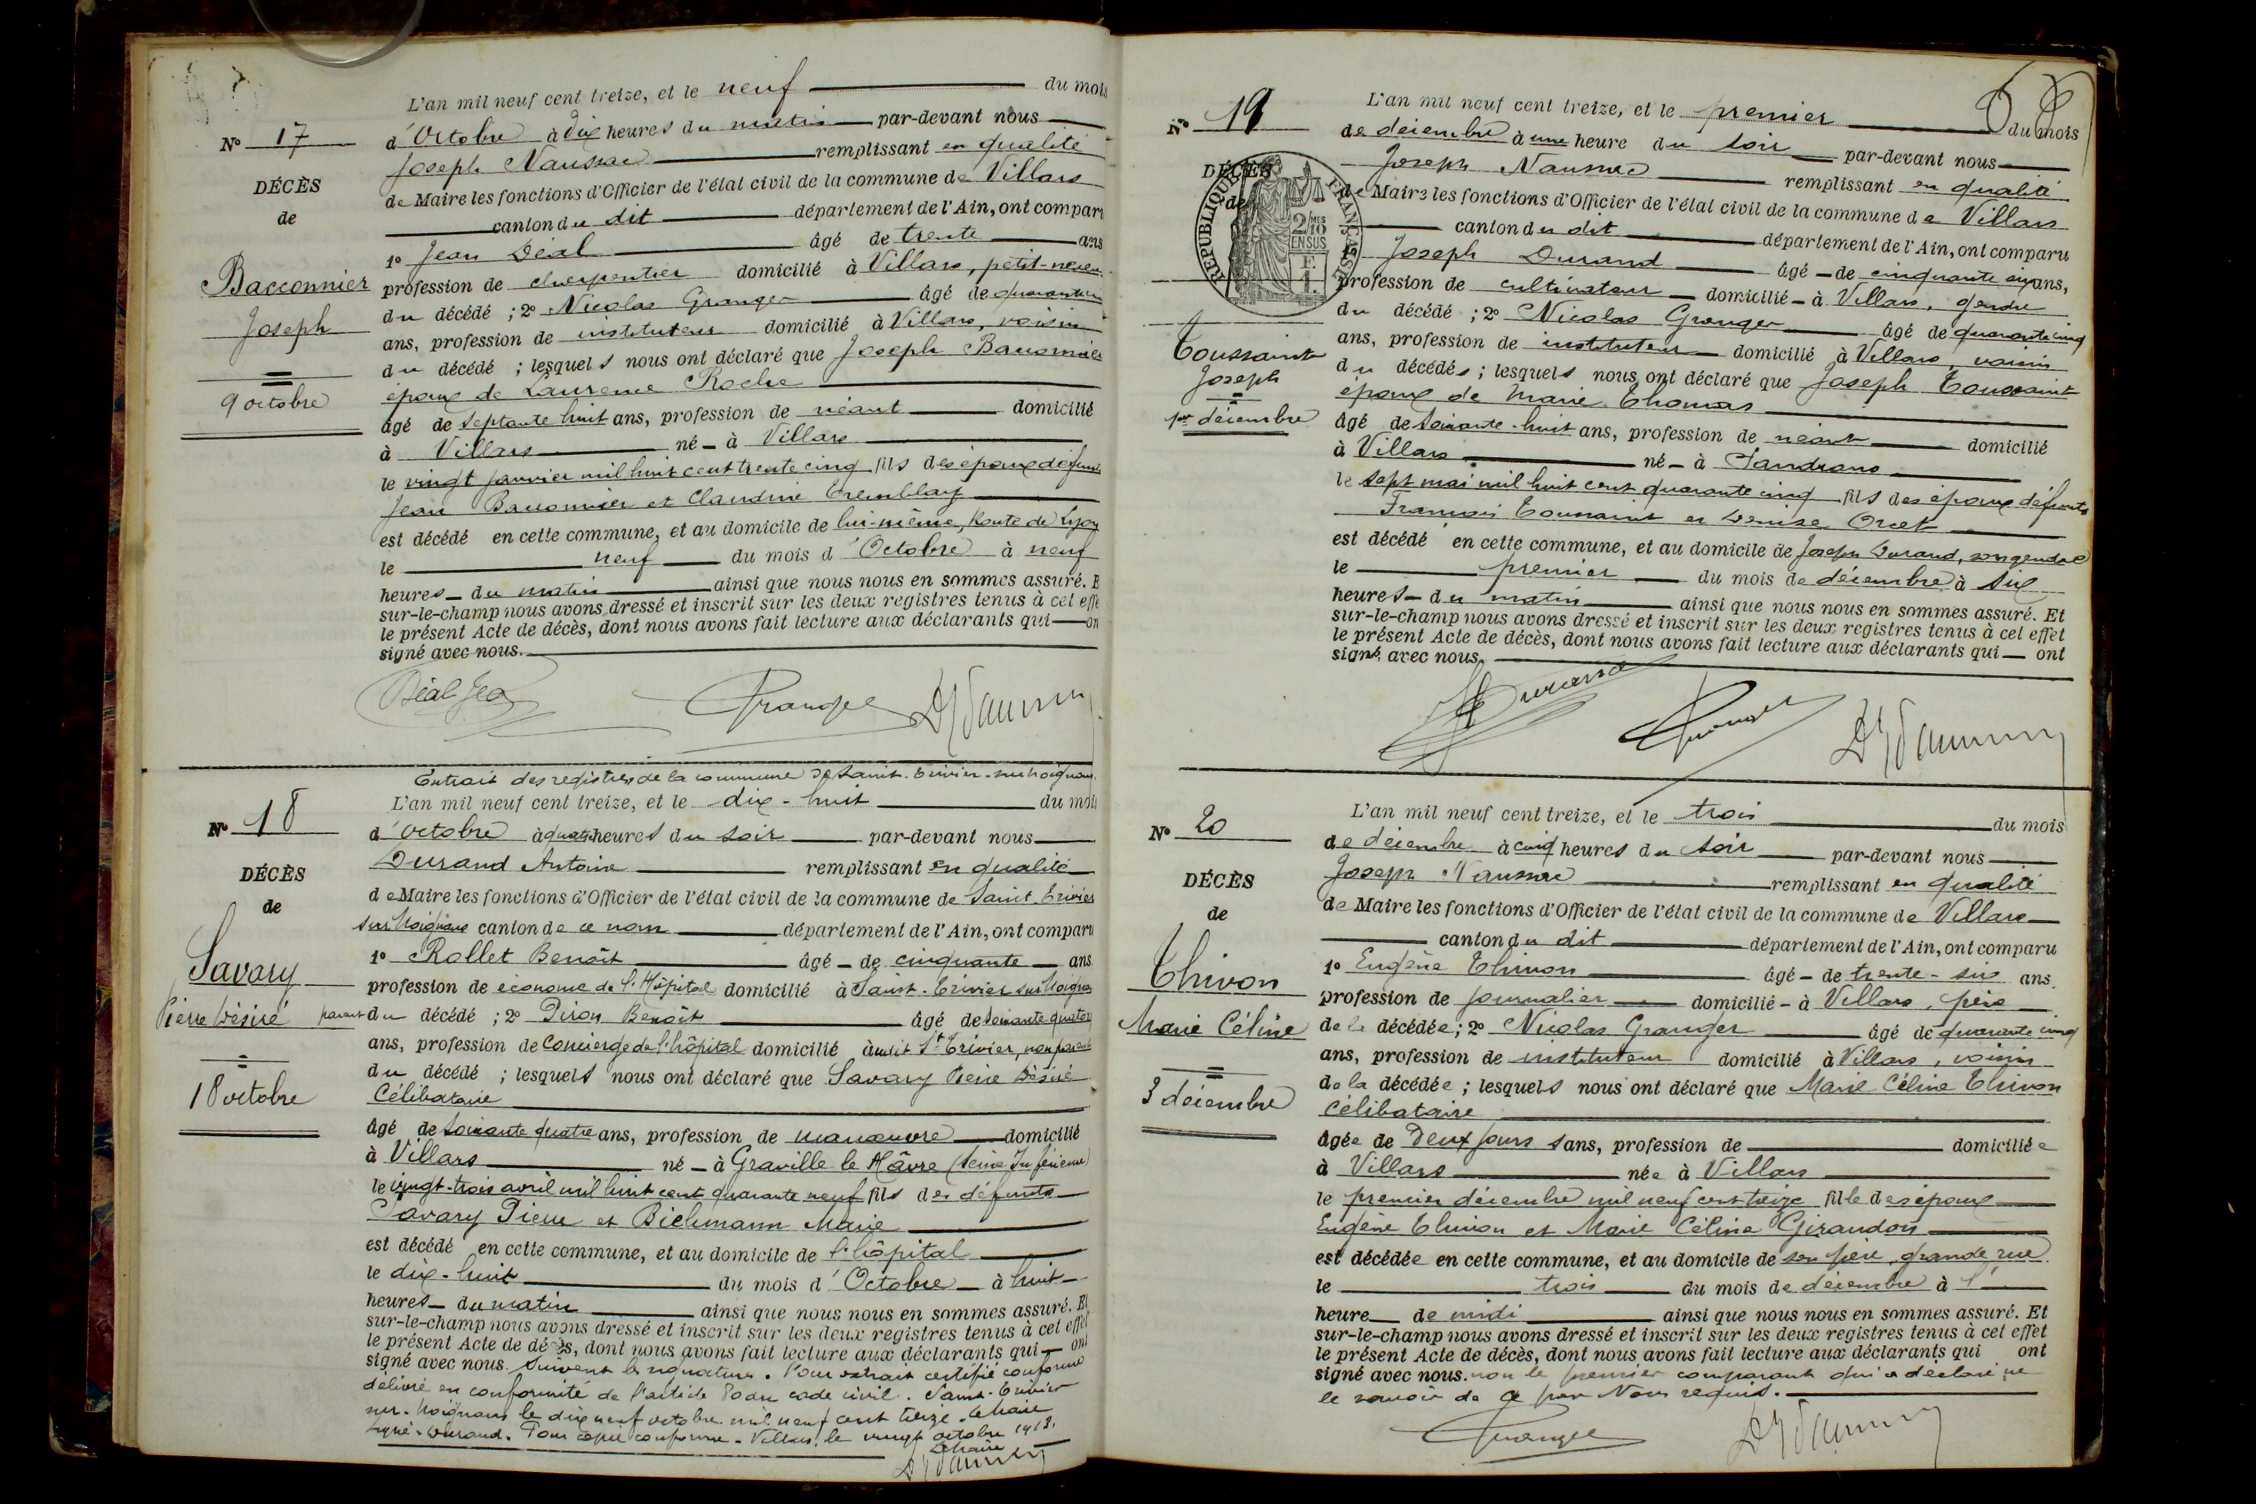 L'an mil neuf cent treize, et le neuf du mois
N° 17
d'Octobre à dix heures du matin par-devant nous
Joseph Naussac remplissant en qualité
DÉCÈS
de Maire les fonctions d'Officier de l'état civil de la commune de Villars
de
canton du dit département de l'Ain, ont comparu
1° Jean Déal âgé de trente ans
Bacconnier
profession de charpentier domicilié à Villars, petit-neveu
Joseph
du décédé ; 2° Nicolas Granger âgé de quarante cinq
ans, profession de instituteur domicilié à Villars, voisin
du décédé ; lesquels nous ont déclaré que Joseph Bacconnier
9 octobre
époux de Laurence Roche
âgé de septante huit ans, profession de néant domicilié
à Villars né à Villars
le vingt janvier mil huit cent trente cinq fils des époux défunts
Jean Bacconnier et Claudine Tremblay
est décédé en cette commune, et au domicile de lui-même, Route de Lyon
le neuf du mois d'Octobre à neuf
heures du matin ainsi que nous nous en sommes assuré. E
sur-le-champ nous avons dressé et inscrit sur les deux registres tenus à cet effe
le présent Acte de décès, dont nous avons fait lecture aux déclarants qui on
signé avec nous.
Déal Jean Granger
Extrait des registres de la commune de Saint-Trivier-sur-Moignans
L'an mil neuf cent treize, et le dix-huit du mois
N° 18
d'octobre à quatre heures du soir par-devant nous
Durand Antoine remplissant en qualité
DÉCÈS
de Maire les fonctions d'Officier de l'état civil de la commune de Saint-Trivier
de
sur Moignans canton de ce nom département de l'Ain, ont comparu
1° Rollet Benoît âgé de cinquante ans
Savary
profession de économe de l'Hôpital domicilié à Saint-Trivier sur Moignans
Pierre Désiré
parent du décédé ; 2° Piron Benoît âgé de soixante quatorze
ans, profession de Concierge de l'hôpital domicilié audit St Trivier, non parent
du décédé ; lesquels nous ont déclaré que Savary Pierre Désiré
18 octobre
Célibataire
âgé de soixante quatre ans, profession de manœuvre domicilié
à Villars né à Graville le Hâvre (Seine Inférieure)
le vingt-trois avril mil huit cent quarante neuf fils des défunts
Savary Pierre et Bichmann Marie
est décédé en cette commune, et au domicile de l'hôpital
le dix-huit du mois d'Octobre à huit
heures du matin ainsi que nous nous en sommes assuré. Et
sur-le-champ nous avons dressé et inscrit sur les deux registres tenus à cet effet
le présent Acte de décès, dont nous avons fait lecture aux déclarants qui ont
signé avec nous. Suivent les signatures. Pour extrait certifié conforme
délivré en conformité de l'article 80 du code civil. Saint-Trivier
sur-Moignans le dix neuf octobre mil neuf cent treize. Le Maire
signé: Durand. Pour copie conforme. Villars, le vingt octobre 1913.
Le Maire
L'an mil neuf cent treize, et le premier du mois
N° 19
de décembre à une heure du soir par-devant nous
Joseph Naussac remplissant en qualité
DÉCÈS
de Maire les fonctions d'Officier de l'état civil de la commune de Villars
de
RÉPUBLIQUE FRANÇAISE
2/10 MES
EN SUS
F.
1.
canton du dit département de l'Ain, ont comparu
1° Joseph Durand âgé de cinquante six ans,
profession de cultivateur domicilié à Villars, gendre
du décédé ; 2° Nicolas Granger âgé de quarante cinq
Toussaint
ans, profession de instituteur domicilié à Villars, voisin
Joseph
du décédés ; lesquels nous ont déclaré que Joseph Toussaint
1er décembre
époux de Marie Thomas
âgé de soixante-huit ans, profession de néant domicilié
à Villars né à Sandrans
le sept mai mil huit cent quarante cinq fils des époux défunts
François Toussaint et Denise Orcet
est décédé en cette commune, et au domicile de Joseph Durand, son gendre
le premier du mois de décembre à six
heures du matin ainsi que nous nous en sommes assuré. Et
sur-le-champ nous avons dressé et inscrit sur les deux registres tenus à cet effet
le présent Acte de décès, dont nous avons fait lecture aux déclarants qui ont
signé avec nous.
Durand Granger
L'an mil neuf cent treize, et le trois du mois
N° 20
de décembre à cinq heures du soir par-devant nous
Joseph Naussac remplissant en qualité
DÉCÈS
de Maire les fonctions d'Officier de l'état civil de la commune de Villars
de
canton du dit département de l'Ain, ont comparu
Thivon
1° Eugène Thivon âgé de trente-six ans
profession de journalier domicilié à Villars, père
Marie Céline
de la décédée ; 2° Nicolas Granger âgé de quarante cinq
ans, profession de instituteur domicilié à Villars, voisin
de la décédée ; lesquels nous ont déclaré que Marie Céline Thivon
3 décembre
célibataire
âgée de Deux jours sans, profession de domiciliée
à Villars née à Villars
le premier décembre mil neuf cent treize fille des époux
Eugène Thivon et Marie Céline Giraudon
est décédée en cette commune, et au domicile de son père, grande rue
le trois du mois de décembre à l'
heure de midi ainsi que nous nous en sommes assuré. Et
sur-le-champ nous avons dressé et inscrit sur les deux registres tenus à cet effet
le présent Acte de décès, dont nous avons fait lecture aux déclarants qui ont
signé avec nous. non le premier comparant qui a déclaré ne
le savoir de ce par Nous requis.
Granger